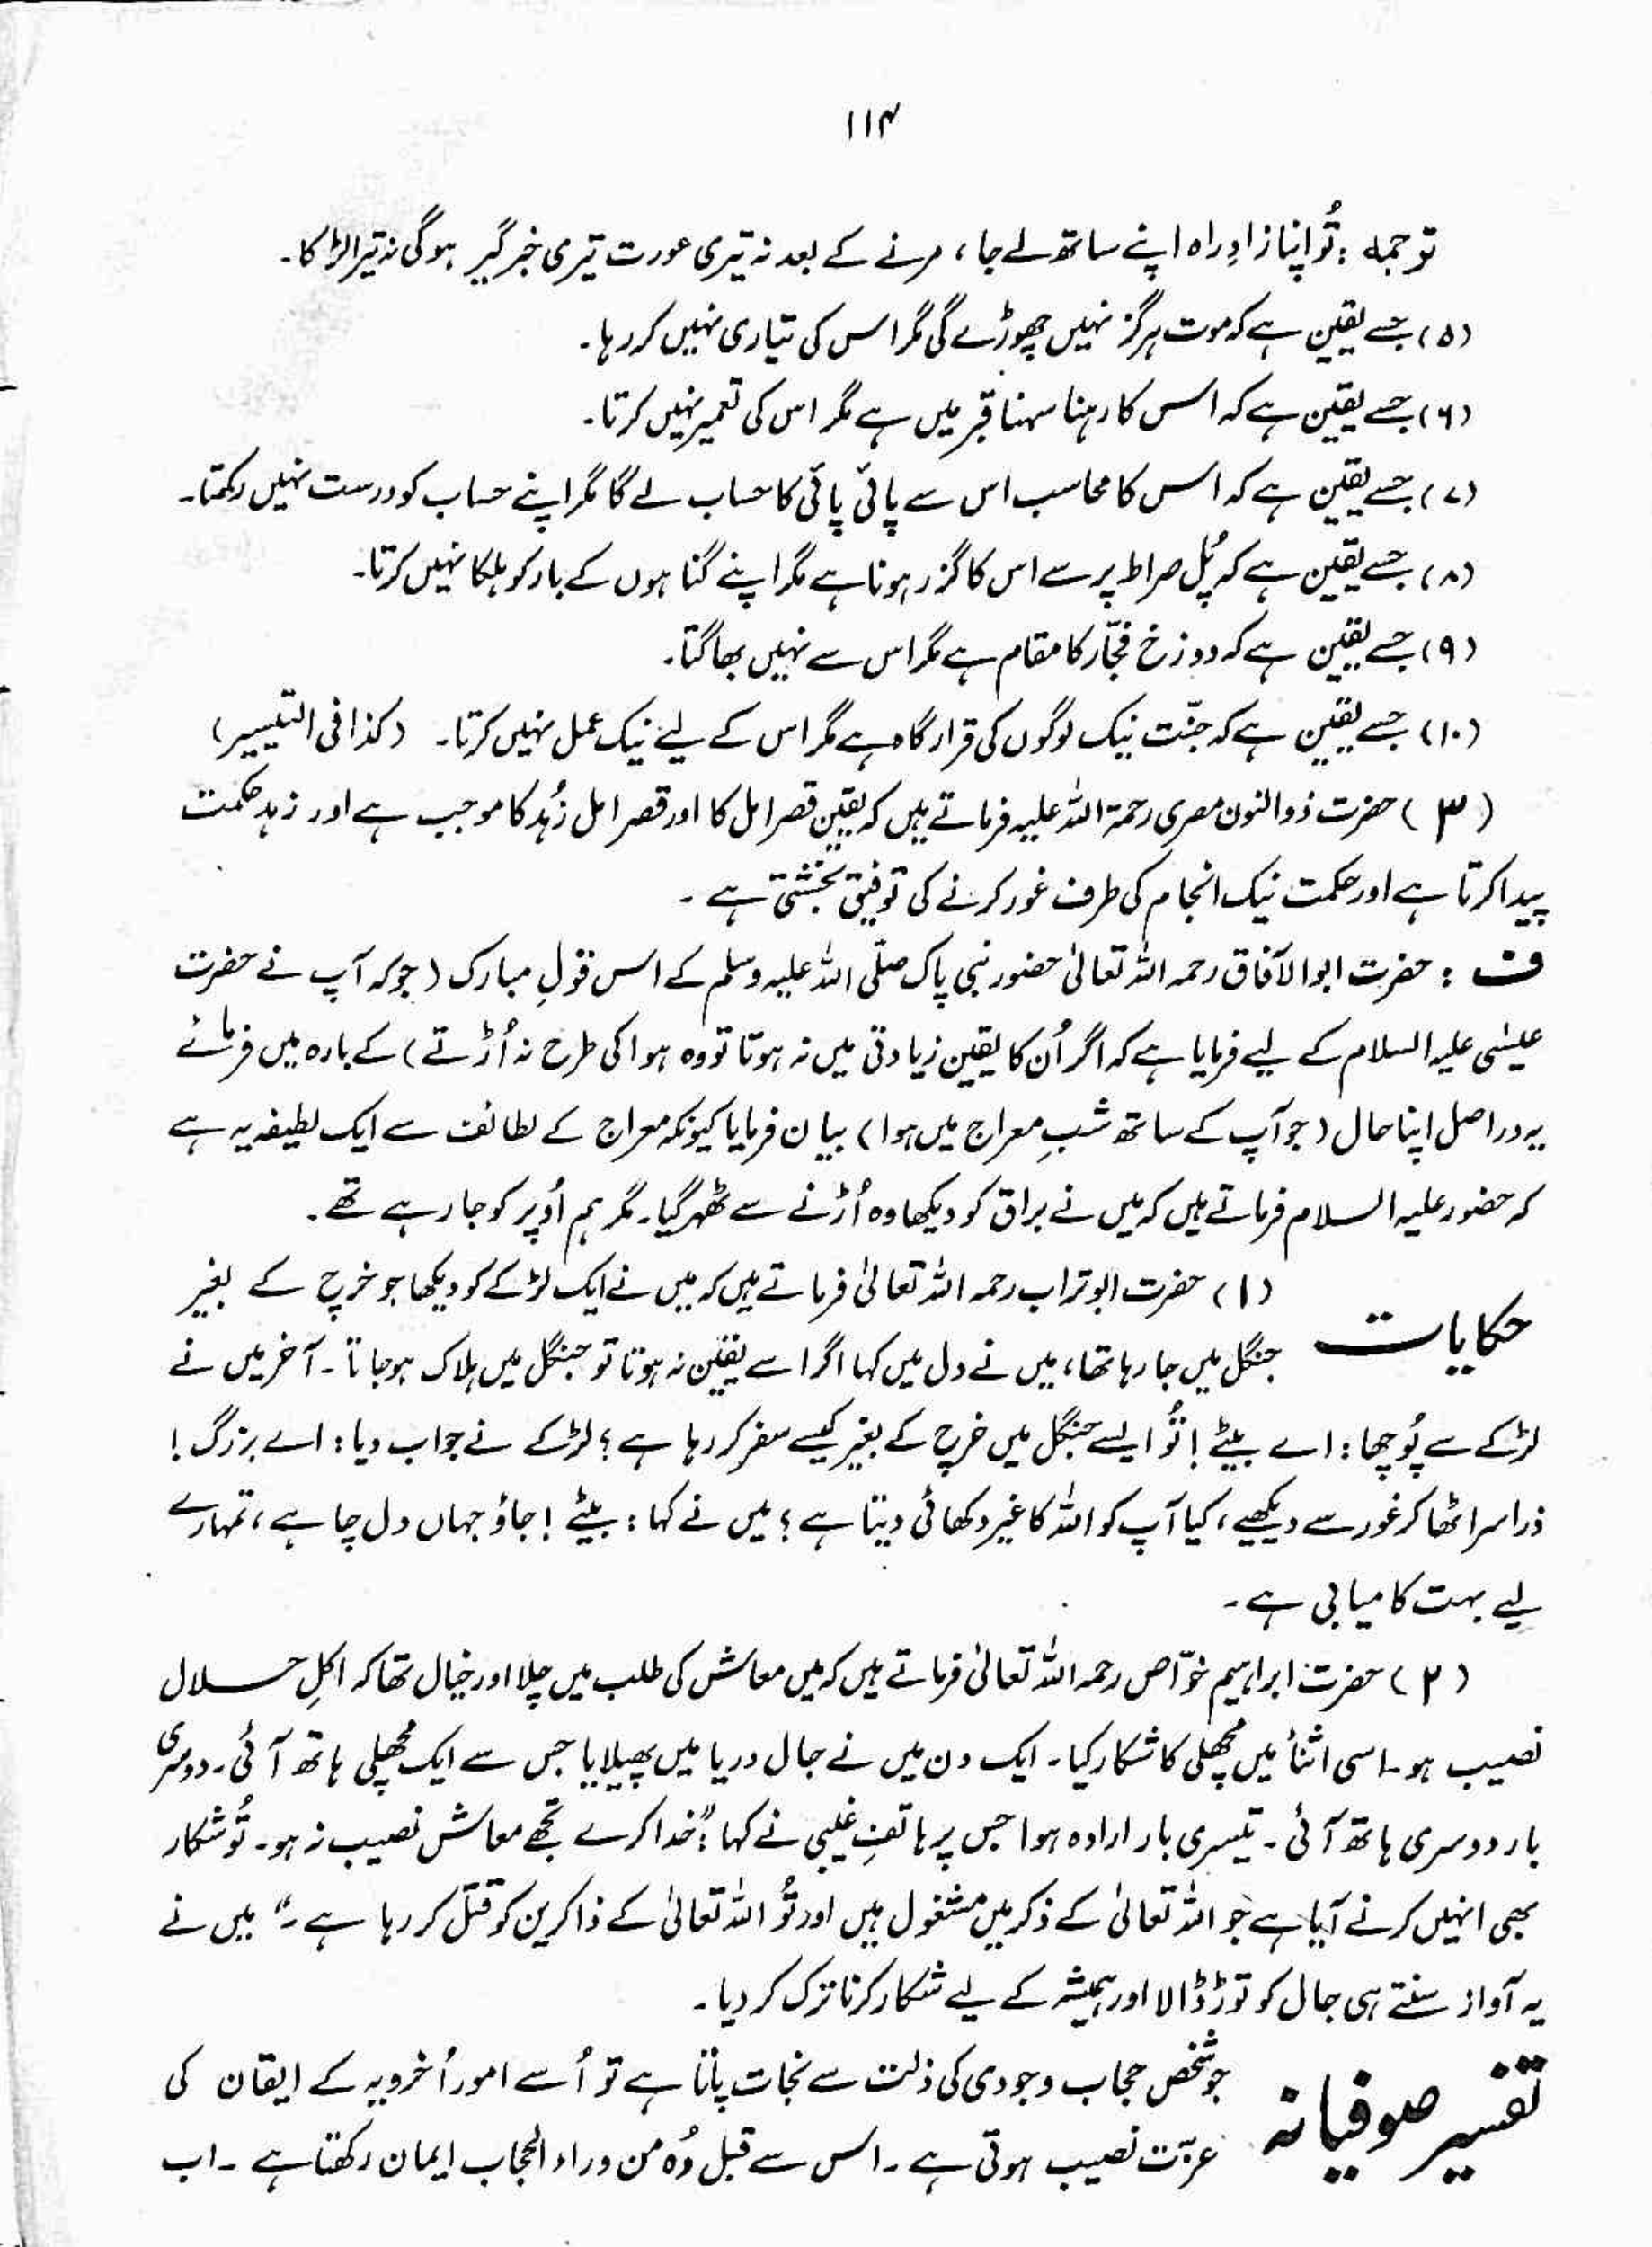 ۱۱۴
ترجمہ : تُو اپنا زادِ راہ اپنے ساتھ لے جا ، مرنے کے بعد نہ تیری عورت تیری خبر گیر ہو گی نہ تیرا لڑکا ۔
(۵) جسے یقین ہے کہ موت ہرگز نہیں چھوڑے گی مگر اس کی تیاری نہیں کر رہا ۔
(۶) جسے یقین ہے کہ اس کا رہنا سہنا قبر میں ہے مگر اس کی تعمیر نہیں کرتا ۔
(۷) جسے یقین ہے کہ اس کا محاسب اس سے پائی پائی کا حساب لے گا مگر اپنے حساب کو درست نہیں رکھتا ۔
(۸) جسے یقین ہے کہ پُل صراط پر سے اس کا گزر ہونا ہے مگر اپنے گنا ہوں کے بار کو ہلکا نہیں کرتا ۔
(۹) جسے یقین ہے کہ دوزخ فجّار کا مقام ہے مگر اس سے نہیں بھاگتا ۔
(۱۰) جسے یقین ہے کہ جنّت نیک لوگوں کی قرار گاہ ہے مگر اس کے لیے نیک عمل نہیں کرتا ۔ (کذا فی التیسیر)
(۳) حضرت ذوالنون مصری رحمۃ اللہ علیہ فرماتے ہیں کہ یقین قصر امل کا اور قصر امل زُہد کا موجب ہے اور زہد حکمت
پیدا کرتا ہے اور حکمت نیک انجام کی طرف غور کرنے کی توفیق بخشتی ہے ۔
ف : حضرت ابوالآفاق رحمہ اللہ تعالیٰ حضور نبی پاک صلّی اللہ علیہ وسلم کے اس قولِ مبارک (جو کہ آپ نے حضرت
عیسٰی علیہ السلام کے لیے فرمایا ہے کہ اگر اُن کا یقین زیادتی میں نہ ہوتا تو وہ ہوا کی طرح نہ اُڑتے) کے بارہ میں فرمائے
یہ دراصل اپنا حال (جو آپ کے ساتھ شبِ معراج میں ہوا) بیان فرمایا کیونکہ معراج کے لطائف سے ایک لطیفہ یہ ہے
کہ حضور علیہ السلام فرماتے ہیں کہ میں نے براق کو دیکھا وہ اُڑنے سے ٹھہر گیا ۔ مگر ہم اُوپر کو جا رہے تھے ۔
حکایات (۱) حضرت ابوتراب رحمہ اللہ تعالیٰ فرماتے ہیں کہ میں نے ایک لڑکے کو دیکھا جو خرچ کے بغیر
جنگل میں جا رہا تھا ، میں نے دل میں کہا اگر اسے یقین نہ ہوتا تو جنگل میں ہلاک ہو جاتا ۔ آخر میں نے
لڑکے سے پُوچھا : اے بیٹے ! تُو ایسے جنگل میں خرچ کے بغیر کیسے سفر کر رہا ہے ؟ لڑکے نے جواب دیا : اے بزرگ !
ذرا سر اٹھا کر غور سے دیکھیے ، کیا آپ کو اللہ کا غیر دکھائی دیتا ہے ؟ میں نے کہا : بیٹے ! جاؤ جہاں دل چاہے ، تمہارے
لیے بہت کامیابی ہے ۔
(۲) حضرت ابراہیم خوّاص رحمہ اللہ تعالیٰ فرماتے ہیں کہ میں معاش کی طلب میں چلا اور خیال تھا کہ اکلِ حلال
نصیب ہو ۔ اسی اثنأ میں مچھلی کا شکار کیا ۔ ایک دن میں نے جال دریا میں پھیلایا جس سے ایک مچھلی ہاتھ آئی ۔ دوسری
بار دوسری ہاتھ آئی ۔ تیسری بار ارادہ ہوا جس پر ہاتفِ غیبی نے کہا : "خدا کرے تجھے معاش نصیب نہ ہو ۔ تُو شکار
بھی انہیں کرنے آیا ہے جو اللہ تعالیٰ کے ذکر میں مشغول ہیں اور تُو اللہ تعالیٰ کے ذاکرین کو قتل کر رہا ہے ۔" میں نے
یہ آواز سنتے ہی جال کو توڑ ڈالا اور ہمیشہ کے لیے شکار کرنا ترک کر دیا ۔
تفسیر صوفیانہ جو شخص حجاب وجودی کی ذلت سے نجات پاتا ہے تو اُسے امور اُخرویہ کے ایقان کی
عزّت نصیب ہوتی ہے ۔ اس سے قبل وُہ من وراء الحجاب ایمان رکھتا ہے ۔ اب